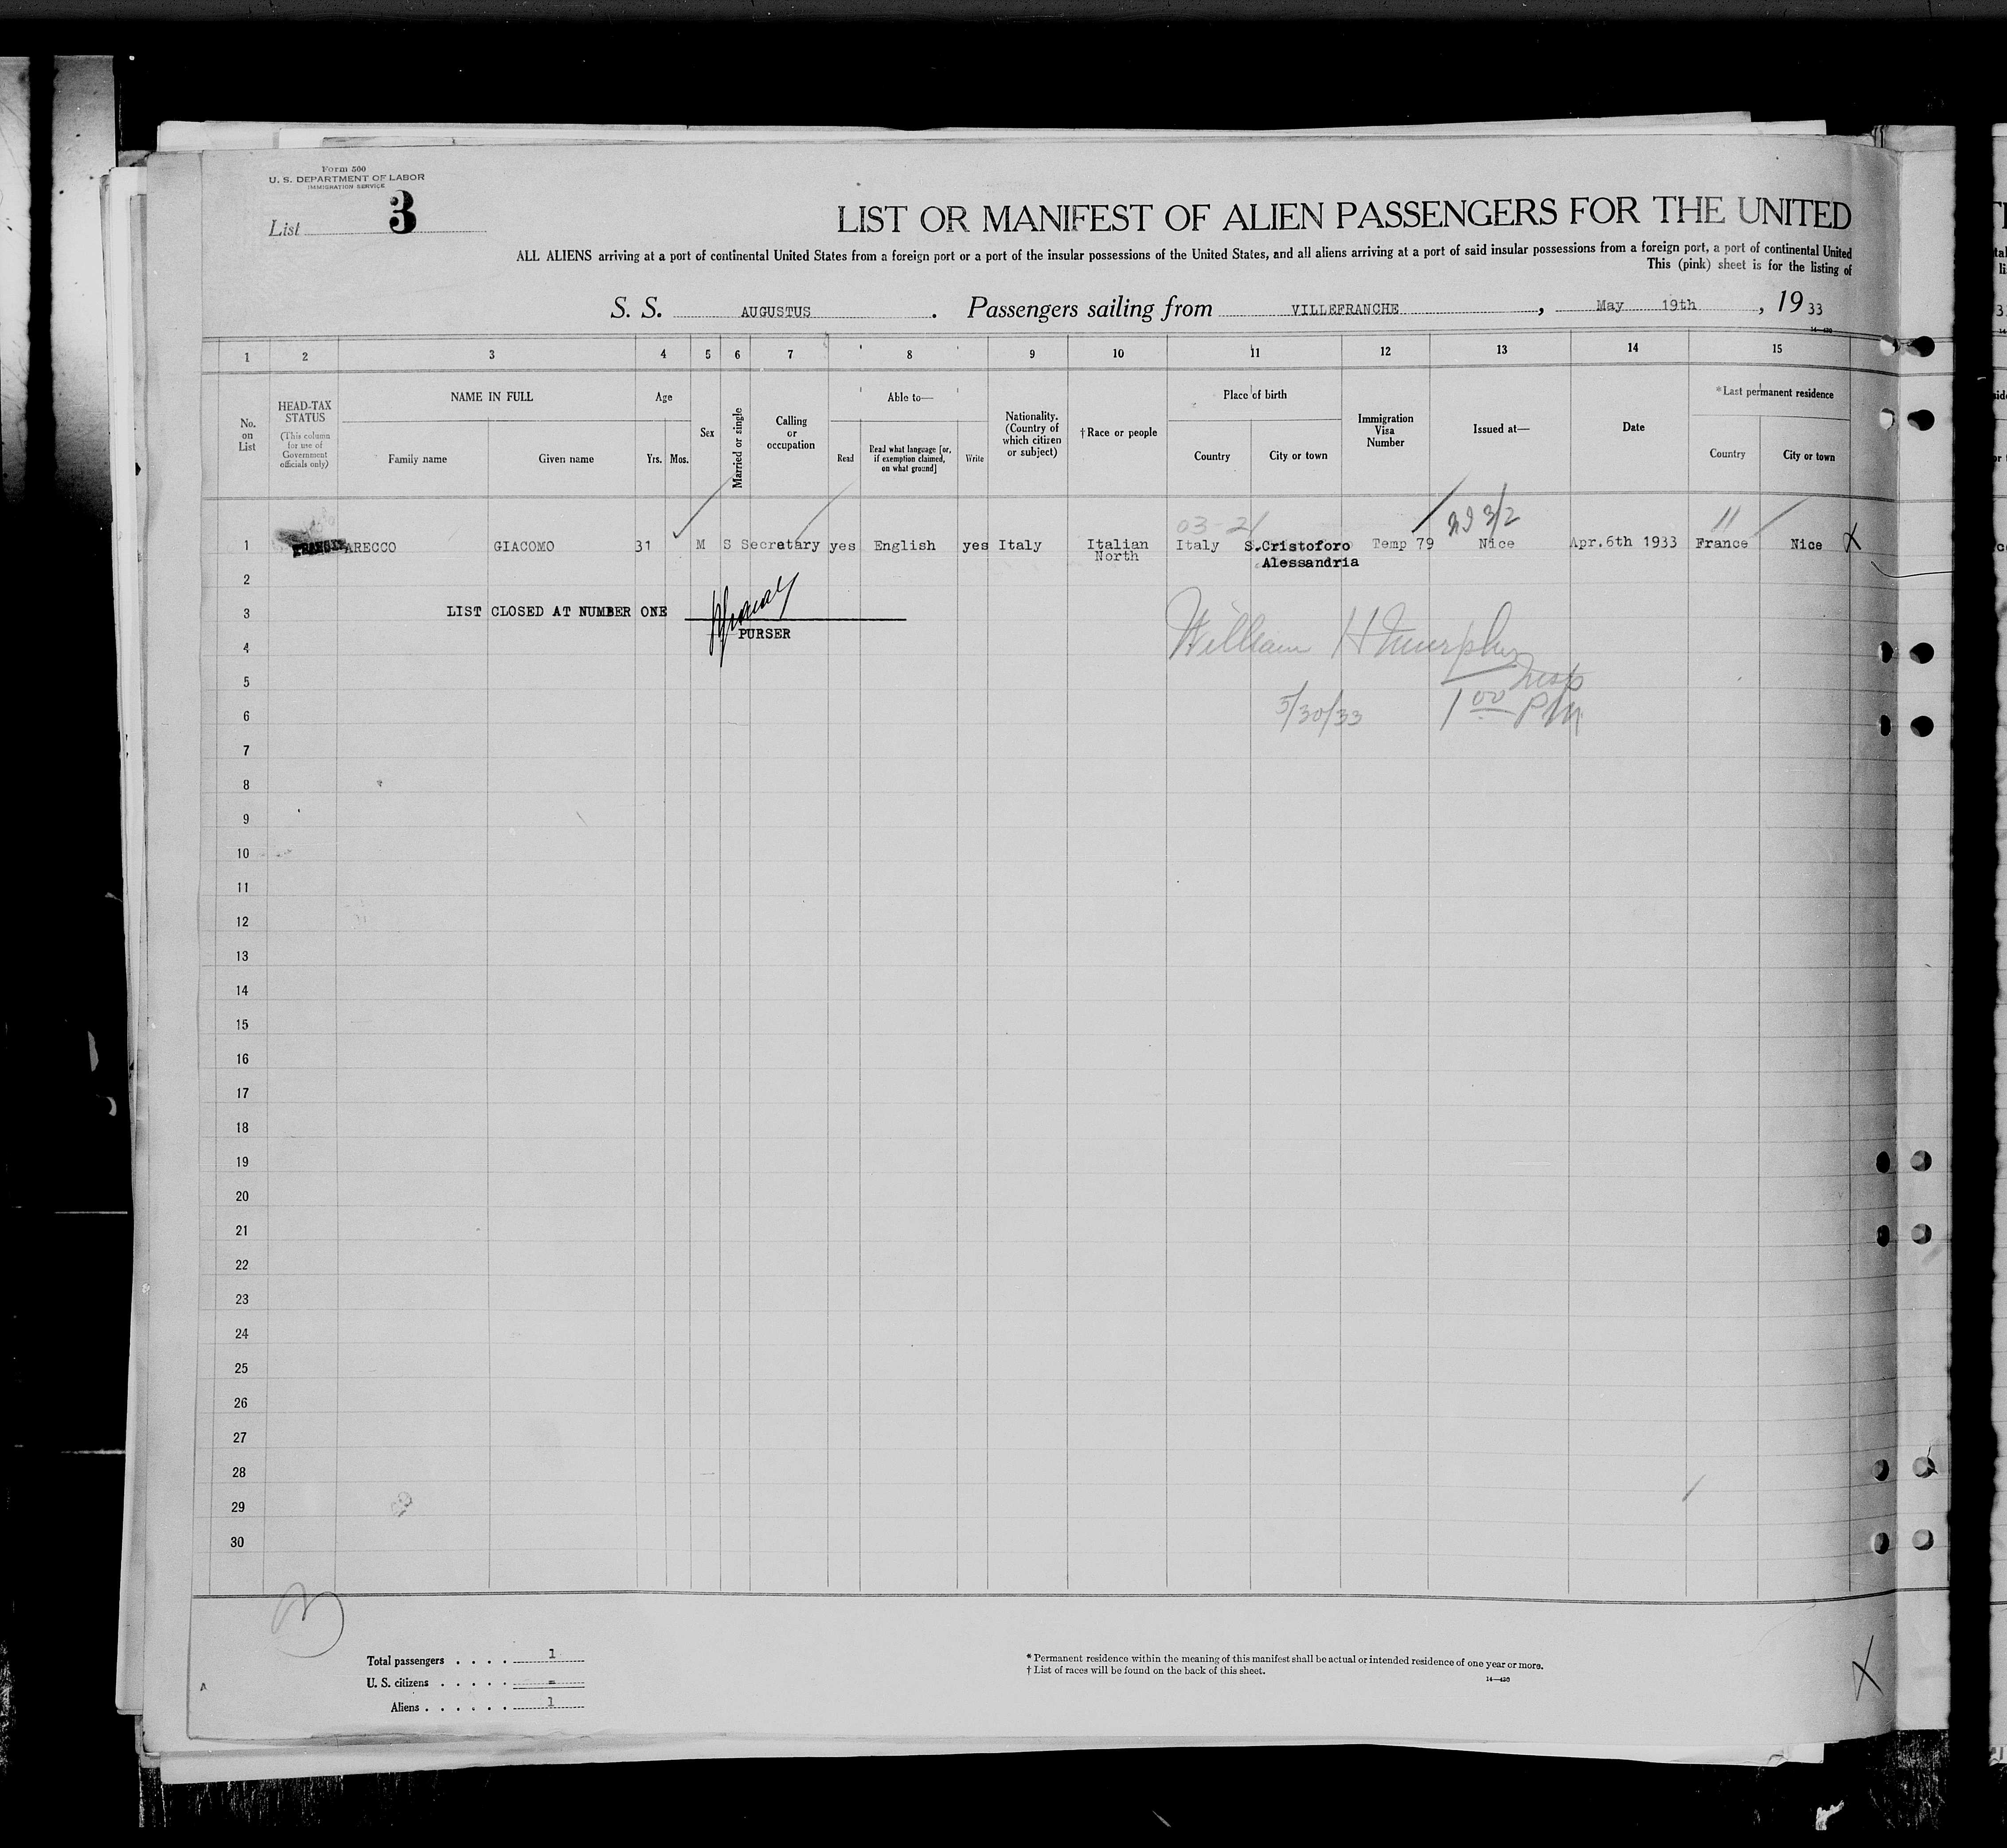 Form 500
U. S. DEPARTMENT OF LABOR
IMMIGRATION SERVICE
List 3
LIST OR MANIFEST OF ALIEN PASSENGERS FOR THE UNITED
ALL ALIENS arriving at a port of continental United States from a foreign port or a port of the insular possessions of the United States, and all aliens arriving at a port of said insular possessions from a foreign port, a port of continental United
This (pink) sheet is for the listing of
S. S. AUGUSTUS. Passengers sailing from VILLEFRANCHE, May 19th, 1933
14—430
1 2 3 4 5 6 7 8 9 10 11 12 13 14 15
No. on List
HEAD-TAX STATUS (This column for use of Government officials only)
NAME IN FULL
Family name Given name
Age
Yrs. Mos.
Sex
Married or single
Calling or occupation
Able to—
Read Read what language [or, if exemption claimed, on what ground] Write
Nationality. (Country of which citizen or subject)
†Race or people
Place of birth
Country City or town
Immigration Visa Number
Issued at—
Date
*Last permanent residence
Country City or town
03-21
1 ARECCO GIACOMO 31 M S Secretary yes English yes Italy Italian Italy S.Cristoforo Temp 79 Nice Apr.6th 1933 France Nice X
North Alessandria
2
3 LIST CLOSED AT NUMBER ONE
PURSER
William H Murphy
4
Insp
5
5/30/33 1 00 PM
6
7
8
9
10
11
12
13
14
15
16
17
18
19
20
21
22
23
24
25
26
27
28
29
30
3
Total passengers . . . . 1
U. S. citizens . . . . . =
Aliens . . . . . . 1
* Permanent residence within the meaning of this manifest shall be actual or intended residence of one year or more.
† List of races will be found on the back of this sheet.
14—430
X